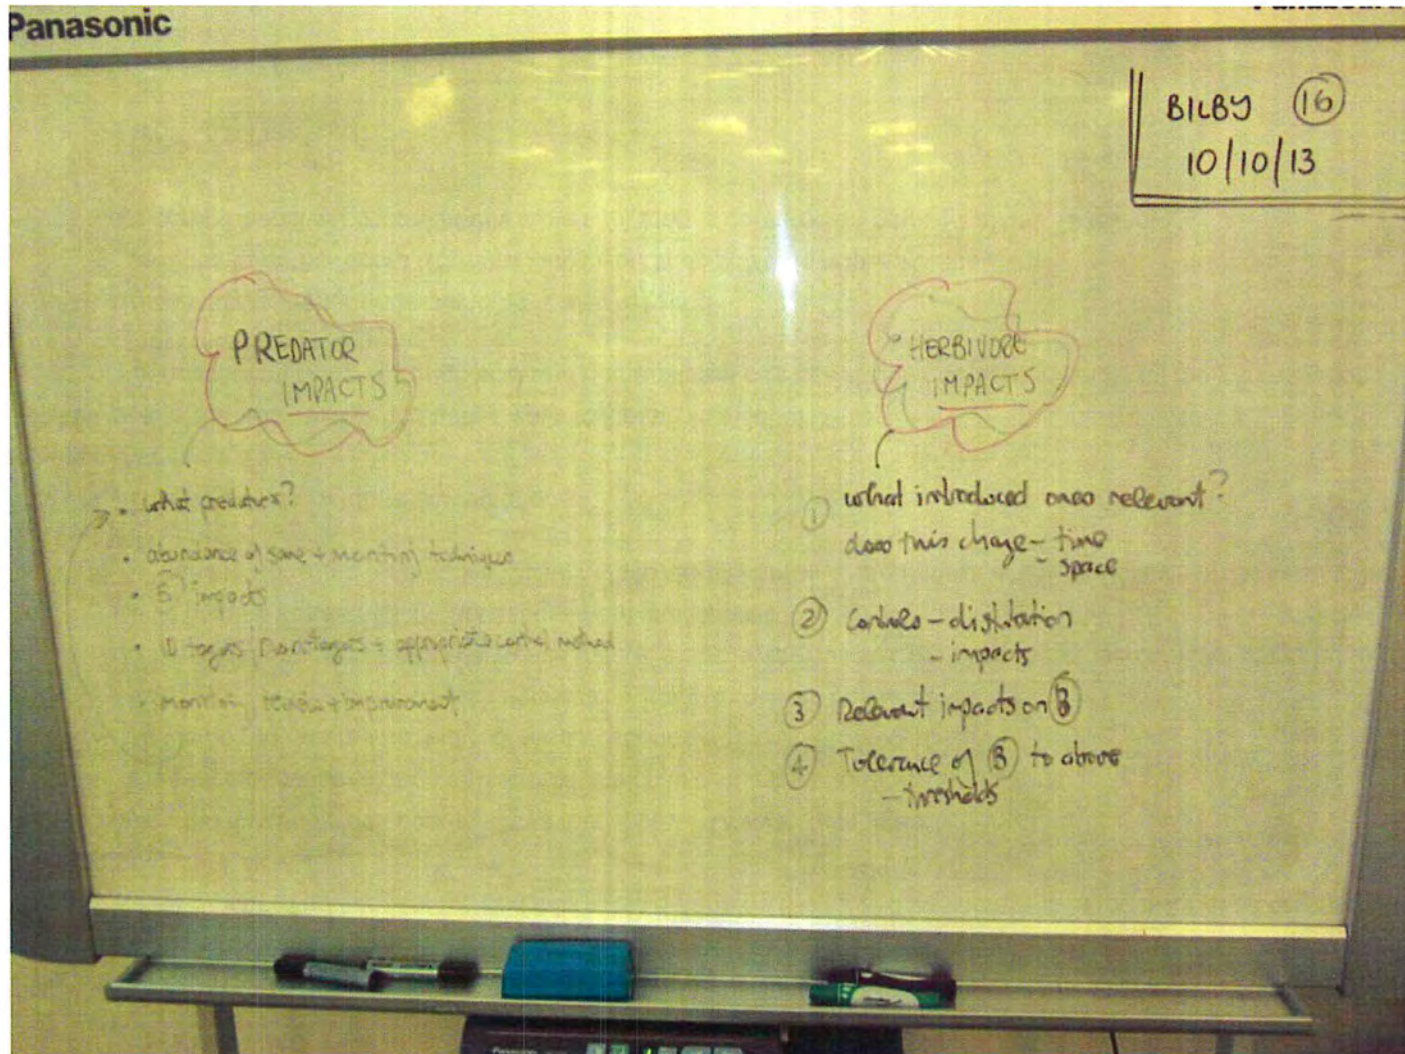 Panasonic
BILBY 16
10/10/13
PREDATOR
IMPACTS
• what predators?
• abundance of same + monitoring techniques
• B impacts
• ID targets / + appropriate control method
• monitor, review + improvement
HERBIVORE
IMPACTS
1 what introduced ones relevant?
does this change - time
- space
2 Controls - distribution
- impacts
3 Relevant impacts on B
4 Tolerance of B to above
- thresholds
Panasonic